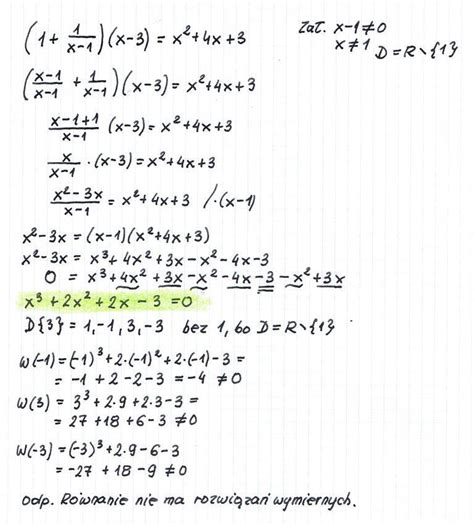 (1 + 1/(x-1))(x-3) = x²+4x+3
Zał. x-1≠0
x≠1 D=R\{1}
((x-1)/(x-1) + 1/(x-1))(x-3) = x²+4x+3
(x-1+1)/(x-1) (x-3) = x²+4x+3
x/(x-1) · (x-3) = x²+4x+3
(x²-3x)/(x-1) = x²+4x+3 /·(x-1)
x²-3x = (x-1)(x²+4x+3)
x²-3x = x³+4x²+3x-x²-4x-3
0 = x³+4x²+3x-x²-4x-3-x²+3x
x³+2x²+2x-3=0
D{3}=1,-1,3,-3 bez 1, bo D=R\{1}
W(-1)=(-1)³+2·(-1)²+2·(-1)-3=
= -1+2-2-3=-4≠0
W(3)= 3³+2·9+2·3-3=
= 27+18+6-3≠0
W(-3)=(-3)³+2·9-6-3
= -27+18-9≠0
odp. Równanie nie ma rozwiązań wymiernych.